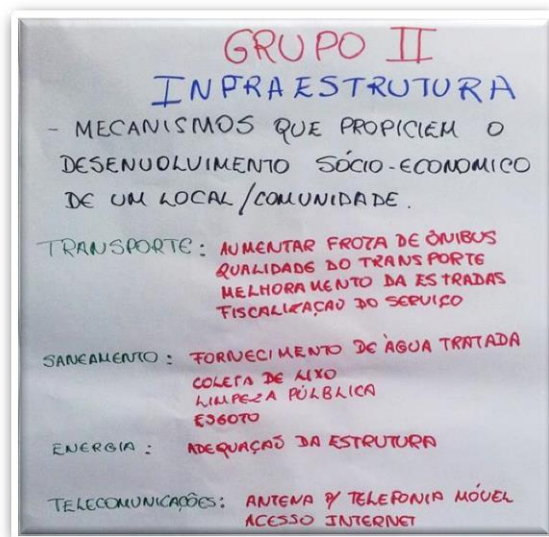 GRUPO II
INFRAESTRUTURA
- MECANISMOS QUE PROPICIEM O
DESENVOLVIMENTO SÓCIO-ECONOMICO
DE UM LOCAL/COMUNIDADE.
TRANSPORTE: AUMENTAR FROTA DE ÔNIBUS
QUALIDADE DO TRANSPORTE
MELHORAMENTO DA ESTRADAS
FISCALIZAÇÃO DO SERVIÇO
SANEAMENTO: FORNECIMENTO DE ÁGUA TRATADA
COLETA DE LIXO
LIMPEZA PÚLBLICA
ESGOTO
ENERGIA: ADEQUAÇAÕ DA ESTRUTURA
TELECOMUNICAÇÕES: ANTENA P/ TELEFONIA MÓVEL
ACESSO INTERNET